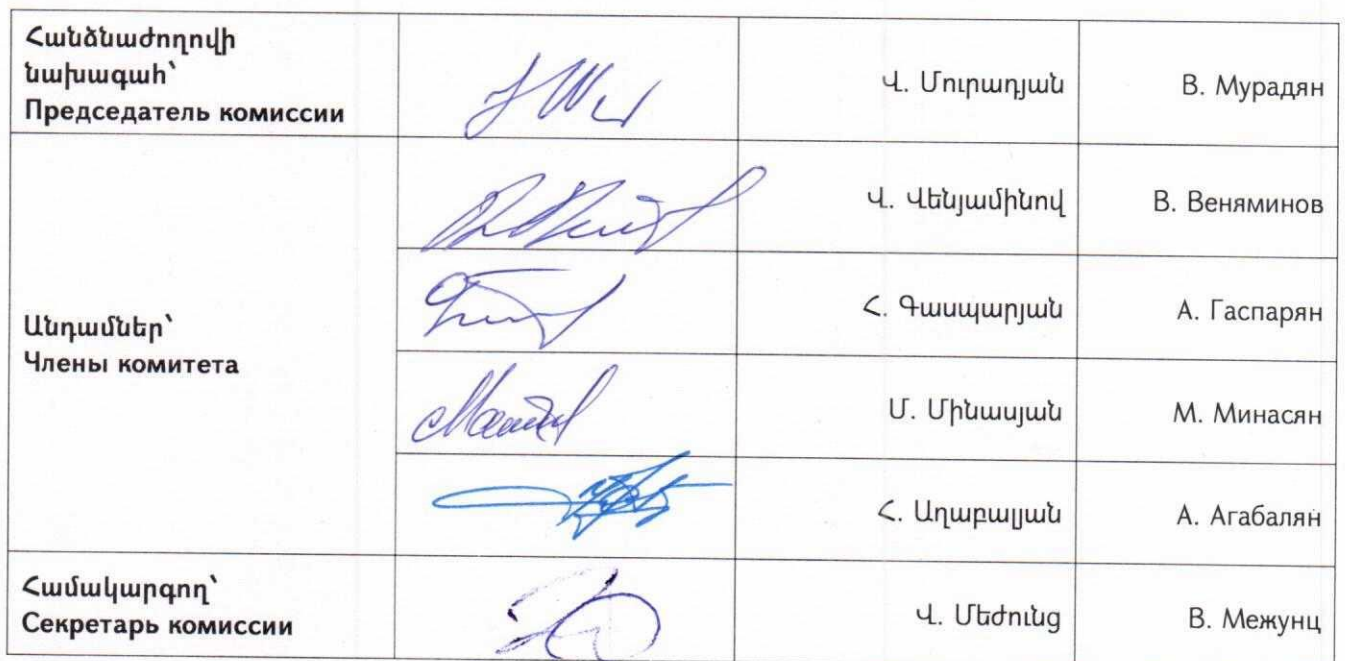 Հանձնաժողովի
նախագահ՝
Председатель комиссии
Վ. Մուրադյան
В. Мурадян
Վ. Վենյամինով
В. Веняминов
Անդամներ՝
Члены комитета
Հ. Գասպարյան
А. Гаспарян
Մ. Մինասյան
М. Минасян
Հ. Աղաբալյան
А. Агабалян
Համակարգող՝
Секретарь комиссии
Վ. Մեժունց
В. Межунц